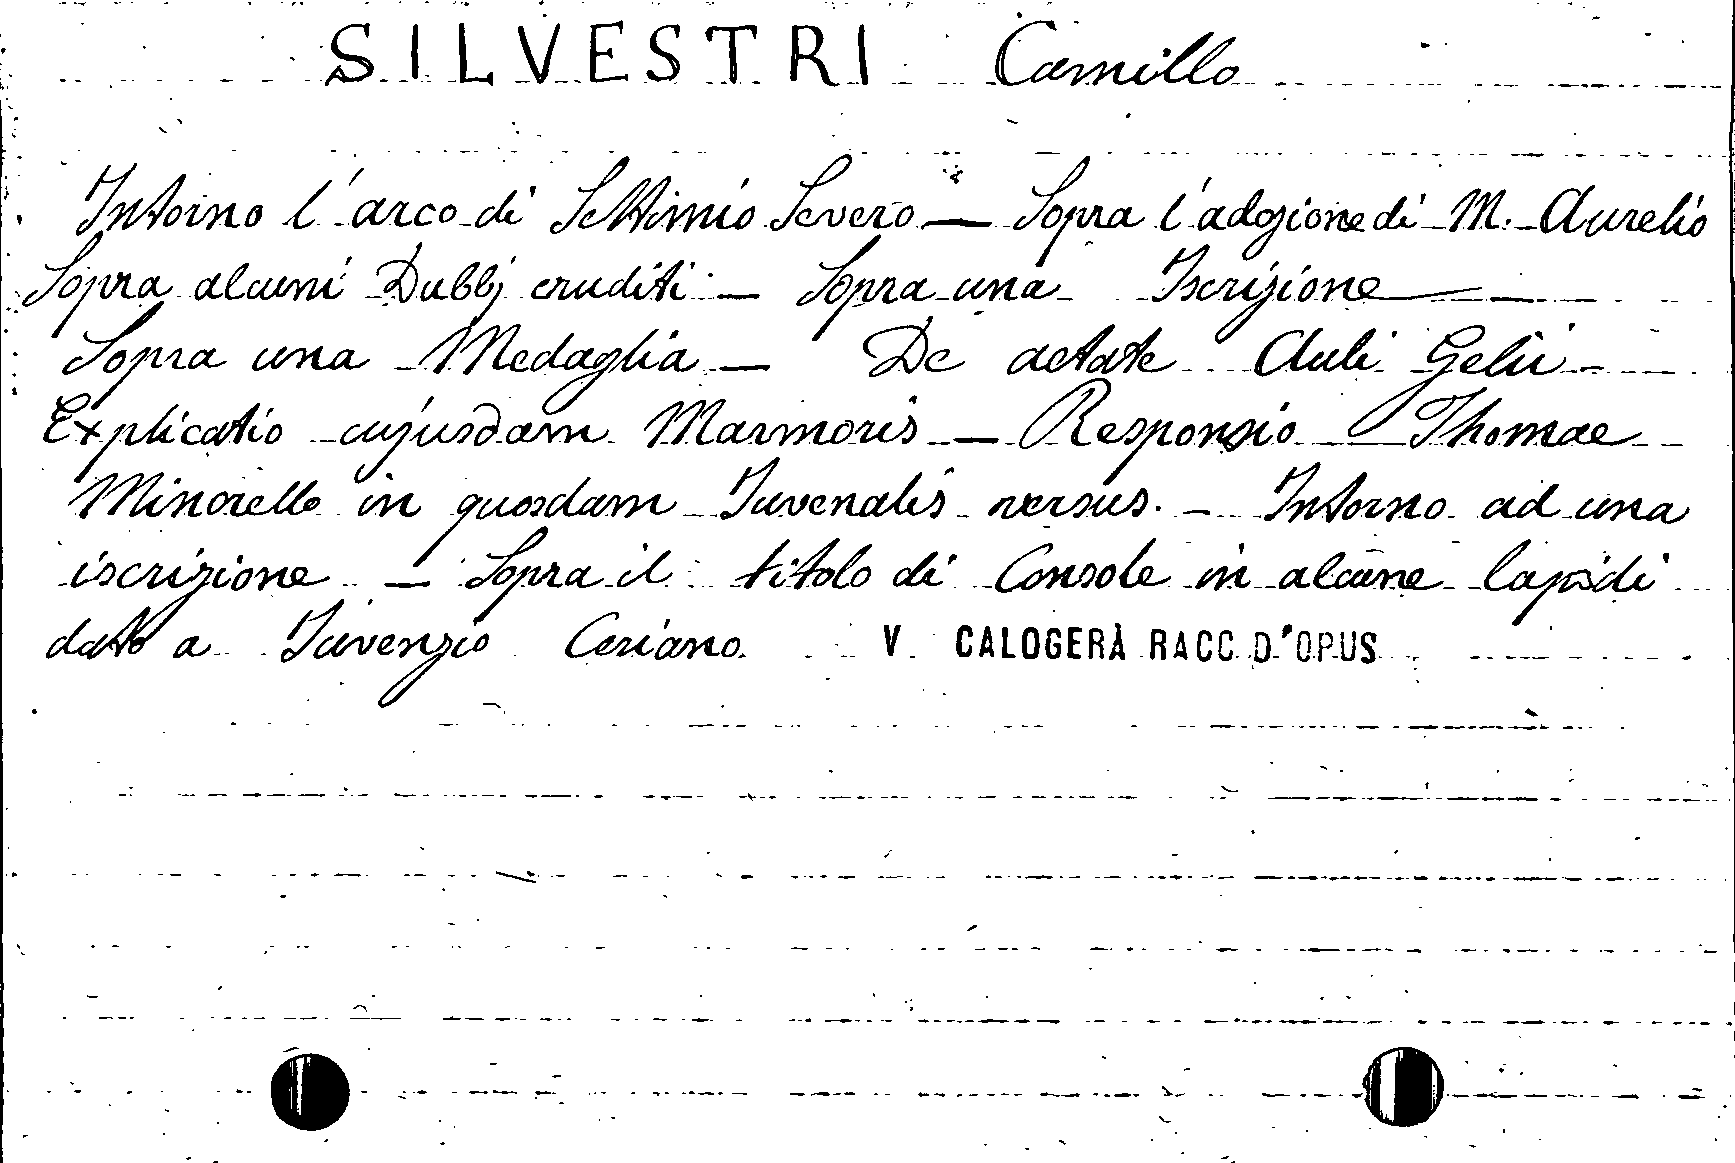 SILVESTRI Camillo
Intorno l'arco di Settimio Severo — Sopra l'adozione di M. Aurelio
Sopra alcuni Dubbj eruditi — Sopra una Iscrizione —
Sopra una Medaglia — De aetate Auli Gelii —
Explicatio cujusdam Marmoris — Responsio Thomae
Minorello in quosdam Juvenalis versus. — Intorno ad una
iscrizione — Sopra il titolo di Console in alcune lapidi
dato a Juvenzio Ceriano V CALOGERÀ RACC D'OPUS